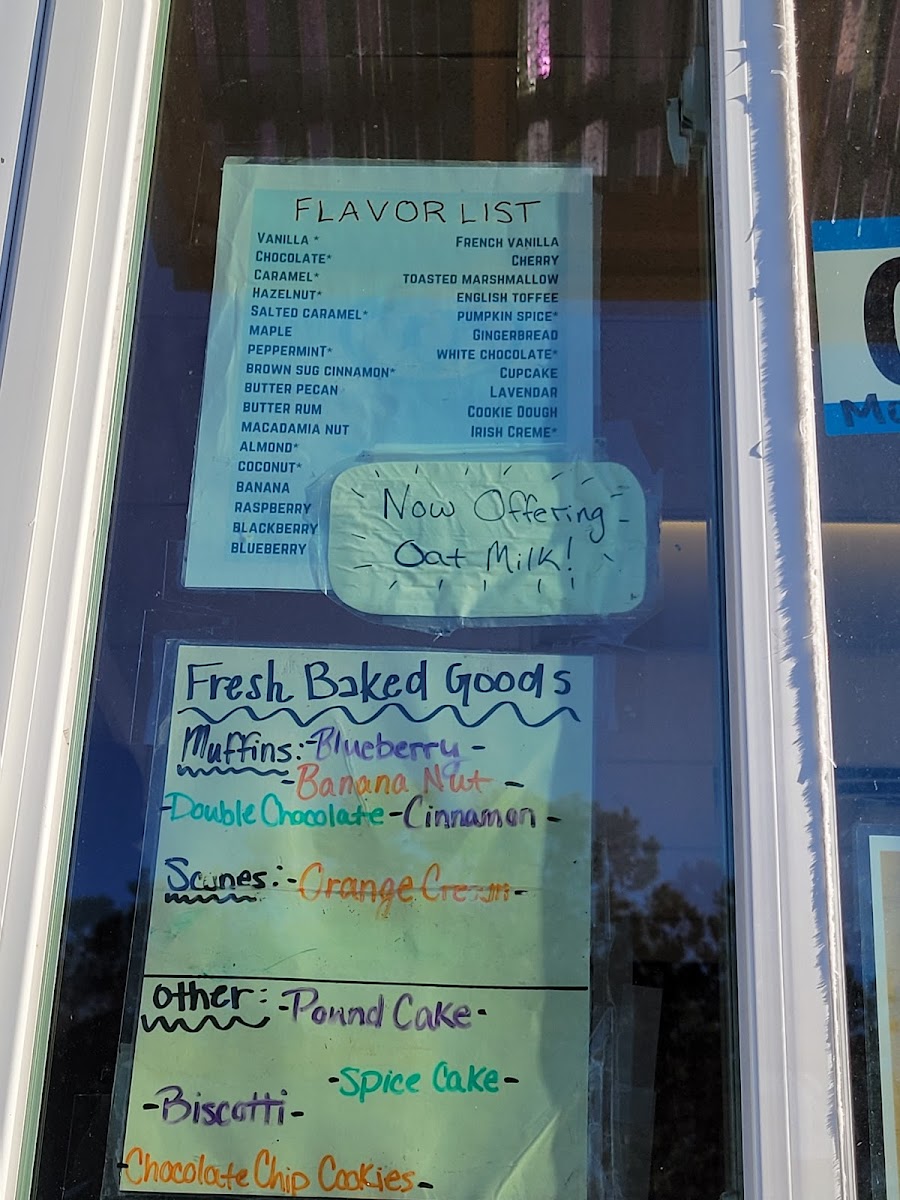 FLAVOR LIST
VANILLA *
CHOCOLATE*
CARAMEL*
HAZELNUT*
SALTED CARAMEL*
MAPLE
PEPPERMINT*
BROWN SUG CINNAMON*
BUTTER PECAN
BUTTER RUM
MACADAMIA NUT
ALMOND*
COCONUT*
BANANA
RASPBERRY
BLACKBERRY
BLUEBERRY
FRENCH VANILLA
CHERRY
TOASTED MARSHMALLOW
ENGLISH TOFFEE
PUMPKIN SPICE*
GINGERBREAD
WHITE CHOCOLATE*
CUPCAKE
LAVENDAR
COOKIE DOUGH
IRISH CREME*
Now Offering
Oat Milk!
Fresh Baked Goods
Muffins: -Blueberry -
-Banana Nut -
-Double Chocolate -Cinnamon -
Scones: -Orange Cream-
other: -Pound Cake-
-Spice Cake-
-Biscotti-
-Chocolate Chip Cookies-